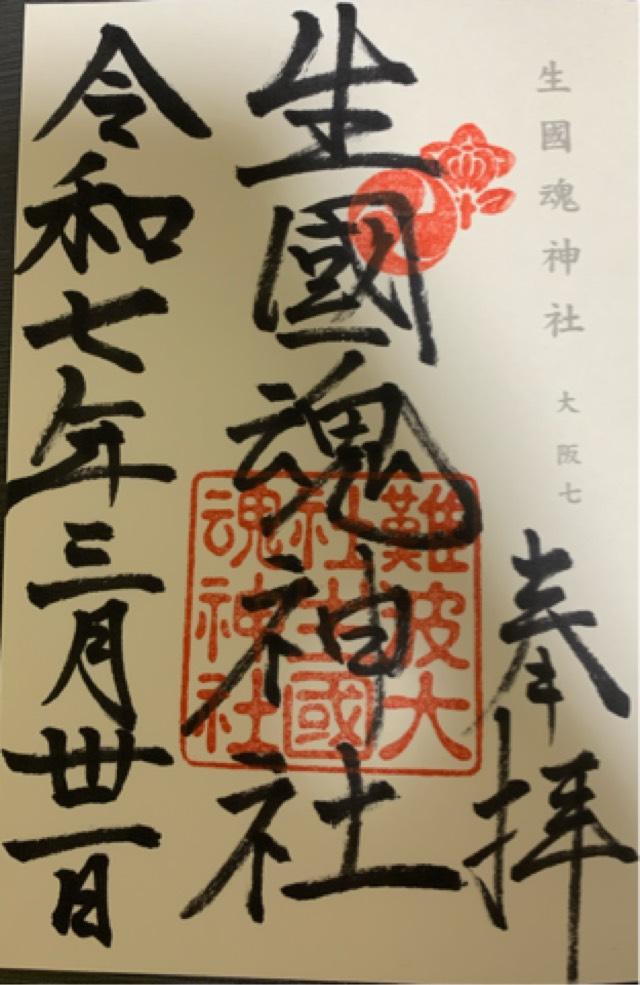 生國魂神社 大阪七
奉拝
生國魂神社
難波大
社生國
魂神社
令和七年三月丗一日